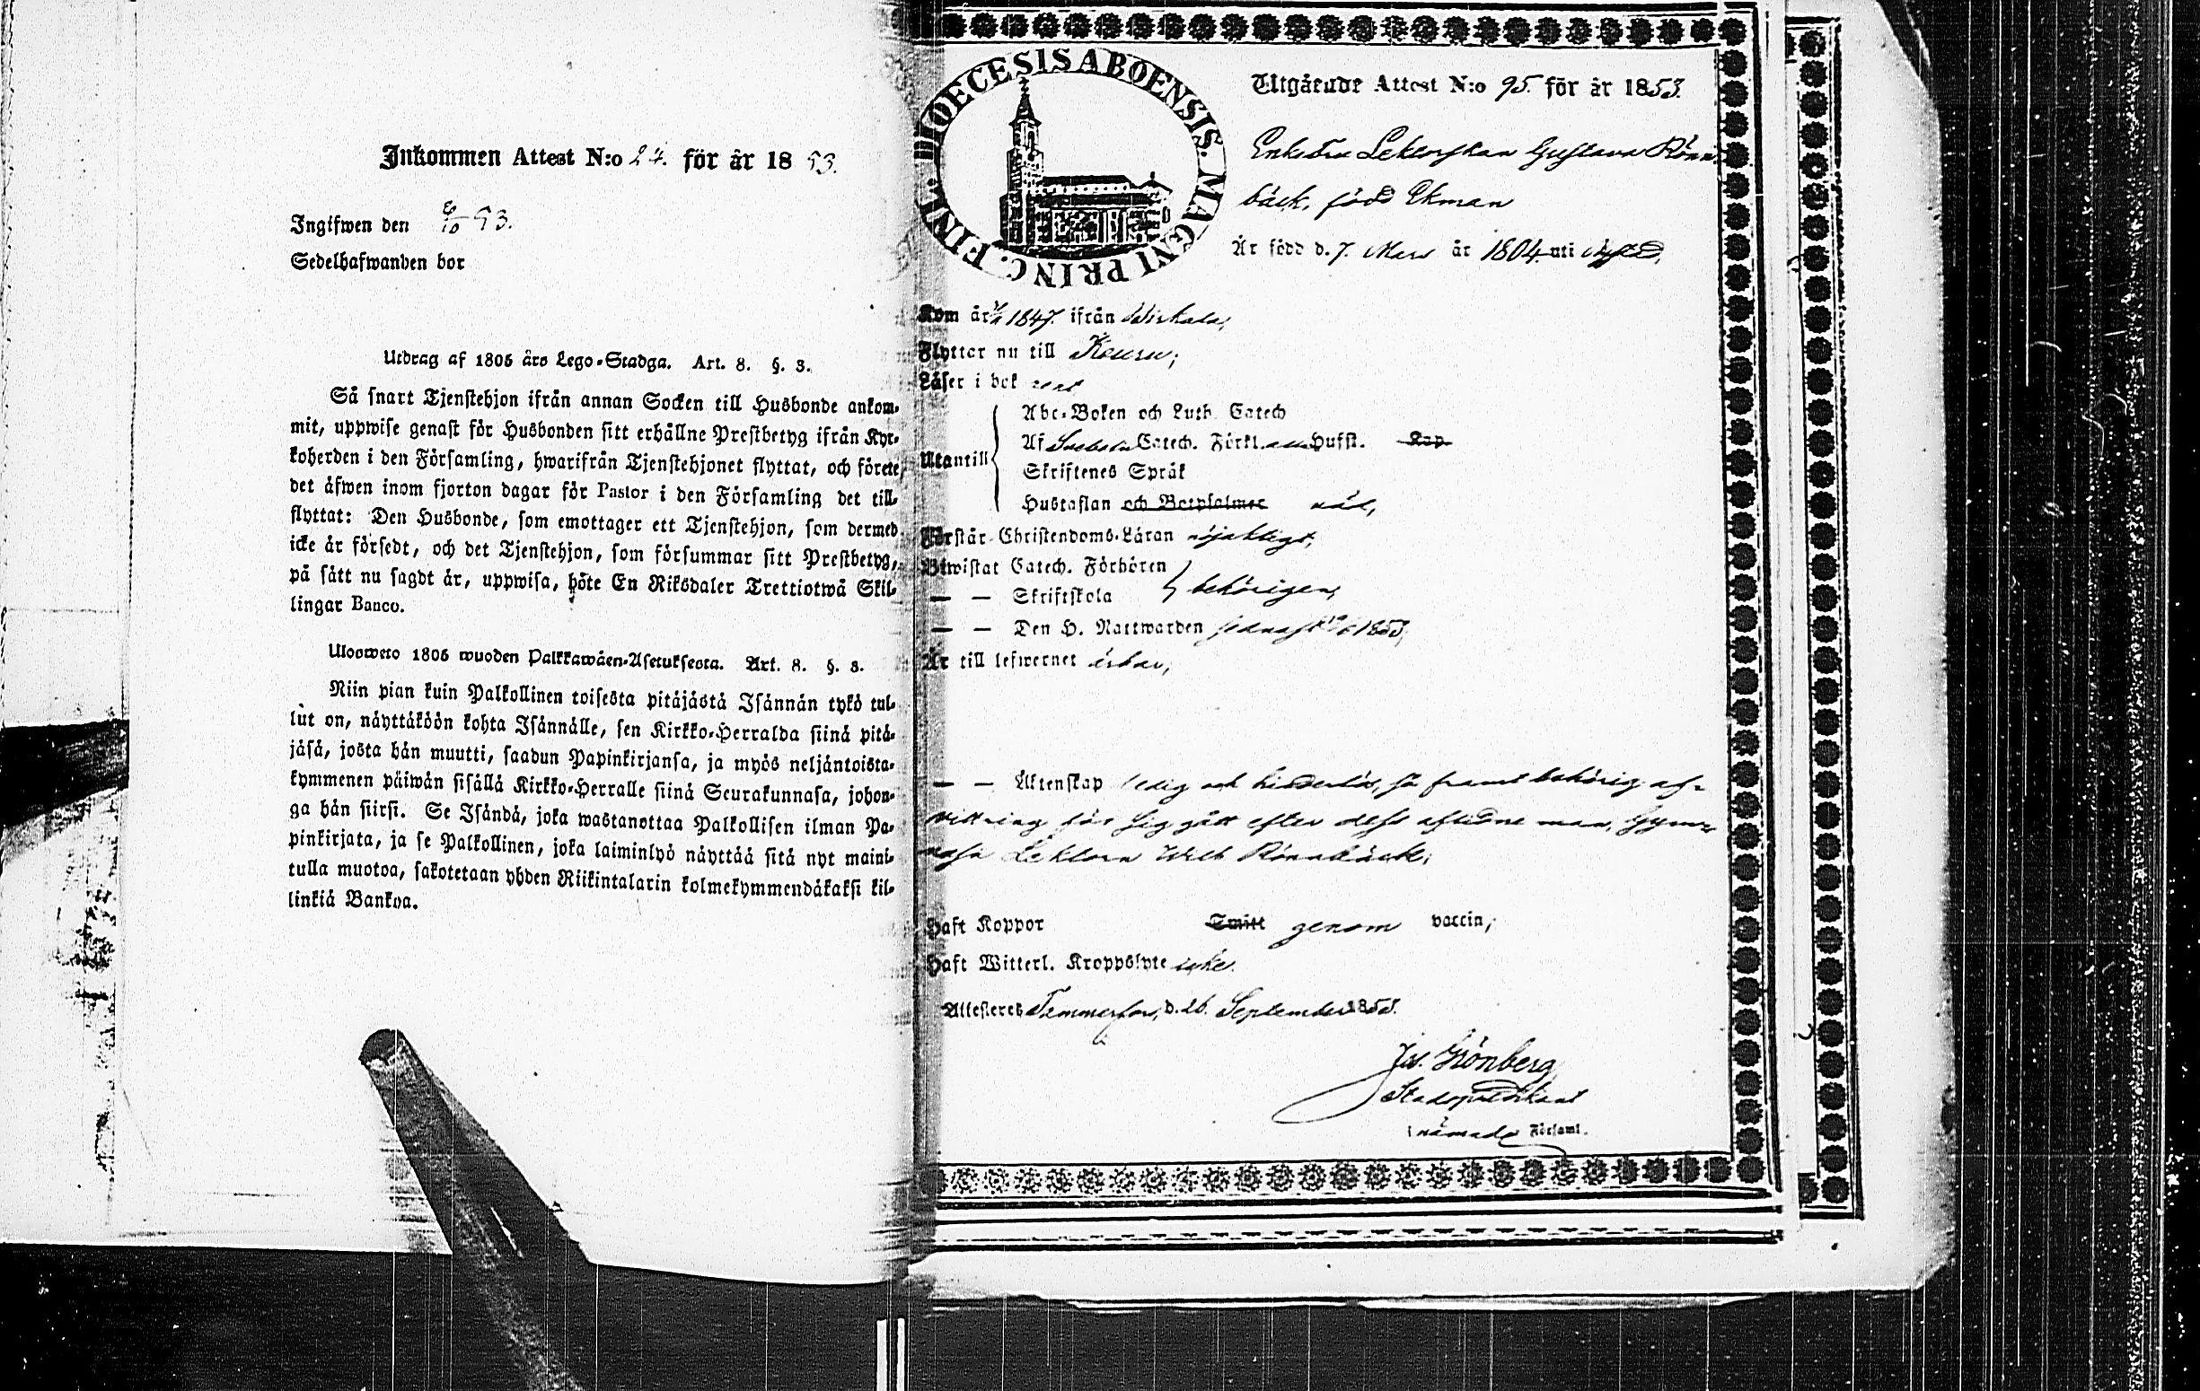 Inkommen Attest N:o 24. för år 1853.
Ingifwen den 8/10 53.
Sedelhafwanden bor
Utdrag af 1805 års Lego-Stadga. Art. 8. §. 3.
Så snart Tjenstehjon ifrån annan Socken till Husbonde ankom-
mit, uppwise genast för Husbonden sitt erhållne Prestbetyg ifrån Kyr-
koherden i den Församling, hwarifrån Tjenstehjonet flyttat, och förete
det äfwen inom fjorton dagar för Pastor i den Församling det till-
flyttat: Den Husbonde, som emottager ett Tjenstehjon, som dermed
icke är försedt, och det Tjenstehjon, som försummar sitt Prestbetyg,
på sätt nu sagdt är, uppwisa, böte En Riksdaler Trettiotwå Skil-
lingar Banco.
Ulosweto 1805 wuoden Palkkawäen-Asetuksesta. Art. 8. §. 3.
Niin pian kuin Palkollinen toisesta pitäjästä Isännän tykö tul-
lut on, näyttäköön kohta Isännälle, sen Kirkko-Herralda siinä pitä-
jäsä, josta hän muutti, saadun Papinkirjansa, ja myös neljäntoista-
kymmenen päiwän sisällä Kirkko-Herralle siinä Seurakunnasa, johon-
ga hän siirsi. Se Isändä, joka wastanottaa Palkollisen ilman Pa-
pinkirjata, ja se Palkollinen, joka laiminlyö näyttää sitä nyt maini-
tulla muotoa, sakotetaan yhden Riikintalarin kolmekymmendäkaksi kil-
linkiä Bankoa.
DIOECESIS ABOENSIS. MAGNI PRINC. FINL.
Utgående Attest N:o 95. för år 1853.
Enkefru Lektorskan Gustava Rönn-
bäck, född Ekman
Är född d. 7. Mars år 1804 uti
Kom år 1847. ifrån Wirkala,
Flyttar nu till Keuru;
Läser i bok
Utantill
Abc-Boken och Luth. Catech
Af Svebelii Catech. Förkl. Hufst. Kap
Skriftenes Språk
Hustaflan och Botpsalmer väl,
Förstår Christendoms-Läran nöjaktigt;
Biwistat Catech. Förhören
— — Skriftskola behörigen;
— — Den H. Nattwarden sednast 1853;
Är till lefwernet ärbar,
— — Äktenskap ledig och hinderlös, så framt behörig af-
vittring för sig gått efter dess aflidne man, Gymn-
Lektorn Rönnbäck;
Haft Koppor Smitt genom vaccin;
Haft Witterl. Kroppslyte icke.
Attesteres Tammerfors, d. 26. September 1853.
Jos. Grönberg
Stadspredikant
i nämnde Församl.